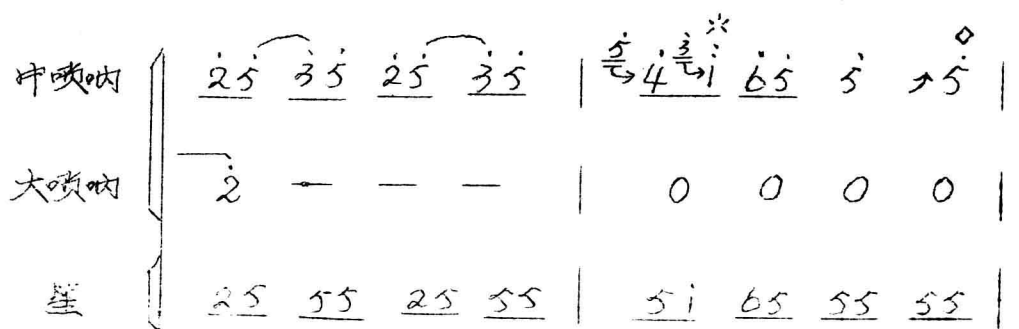 中唢呐 2̇5̇ 3̇5̇ 2̇5̇ 3̇5̇ | 5̇ 4̇ 3̇ i 6̇5̇ 5̇ ↗5̇ |
大唢呐 2̇ — — — | 0 0 0 0 |
笙 25 55 25 55 | 5i 65 55 55 |